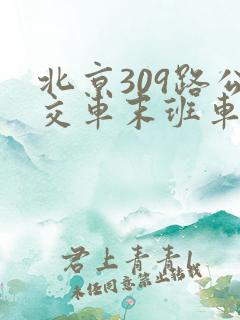 北京309路公
交车末班车
君上青青l
未经同意禁止转载